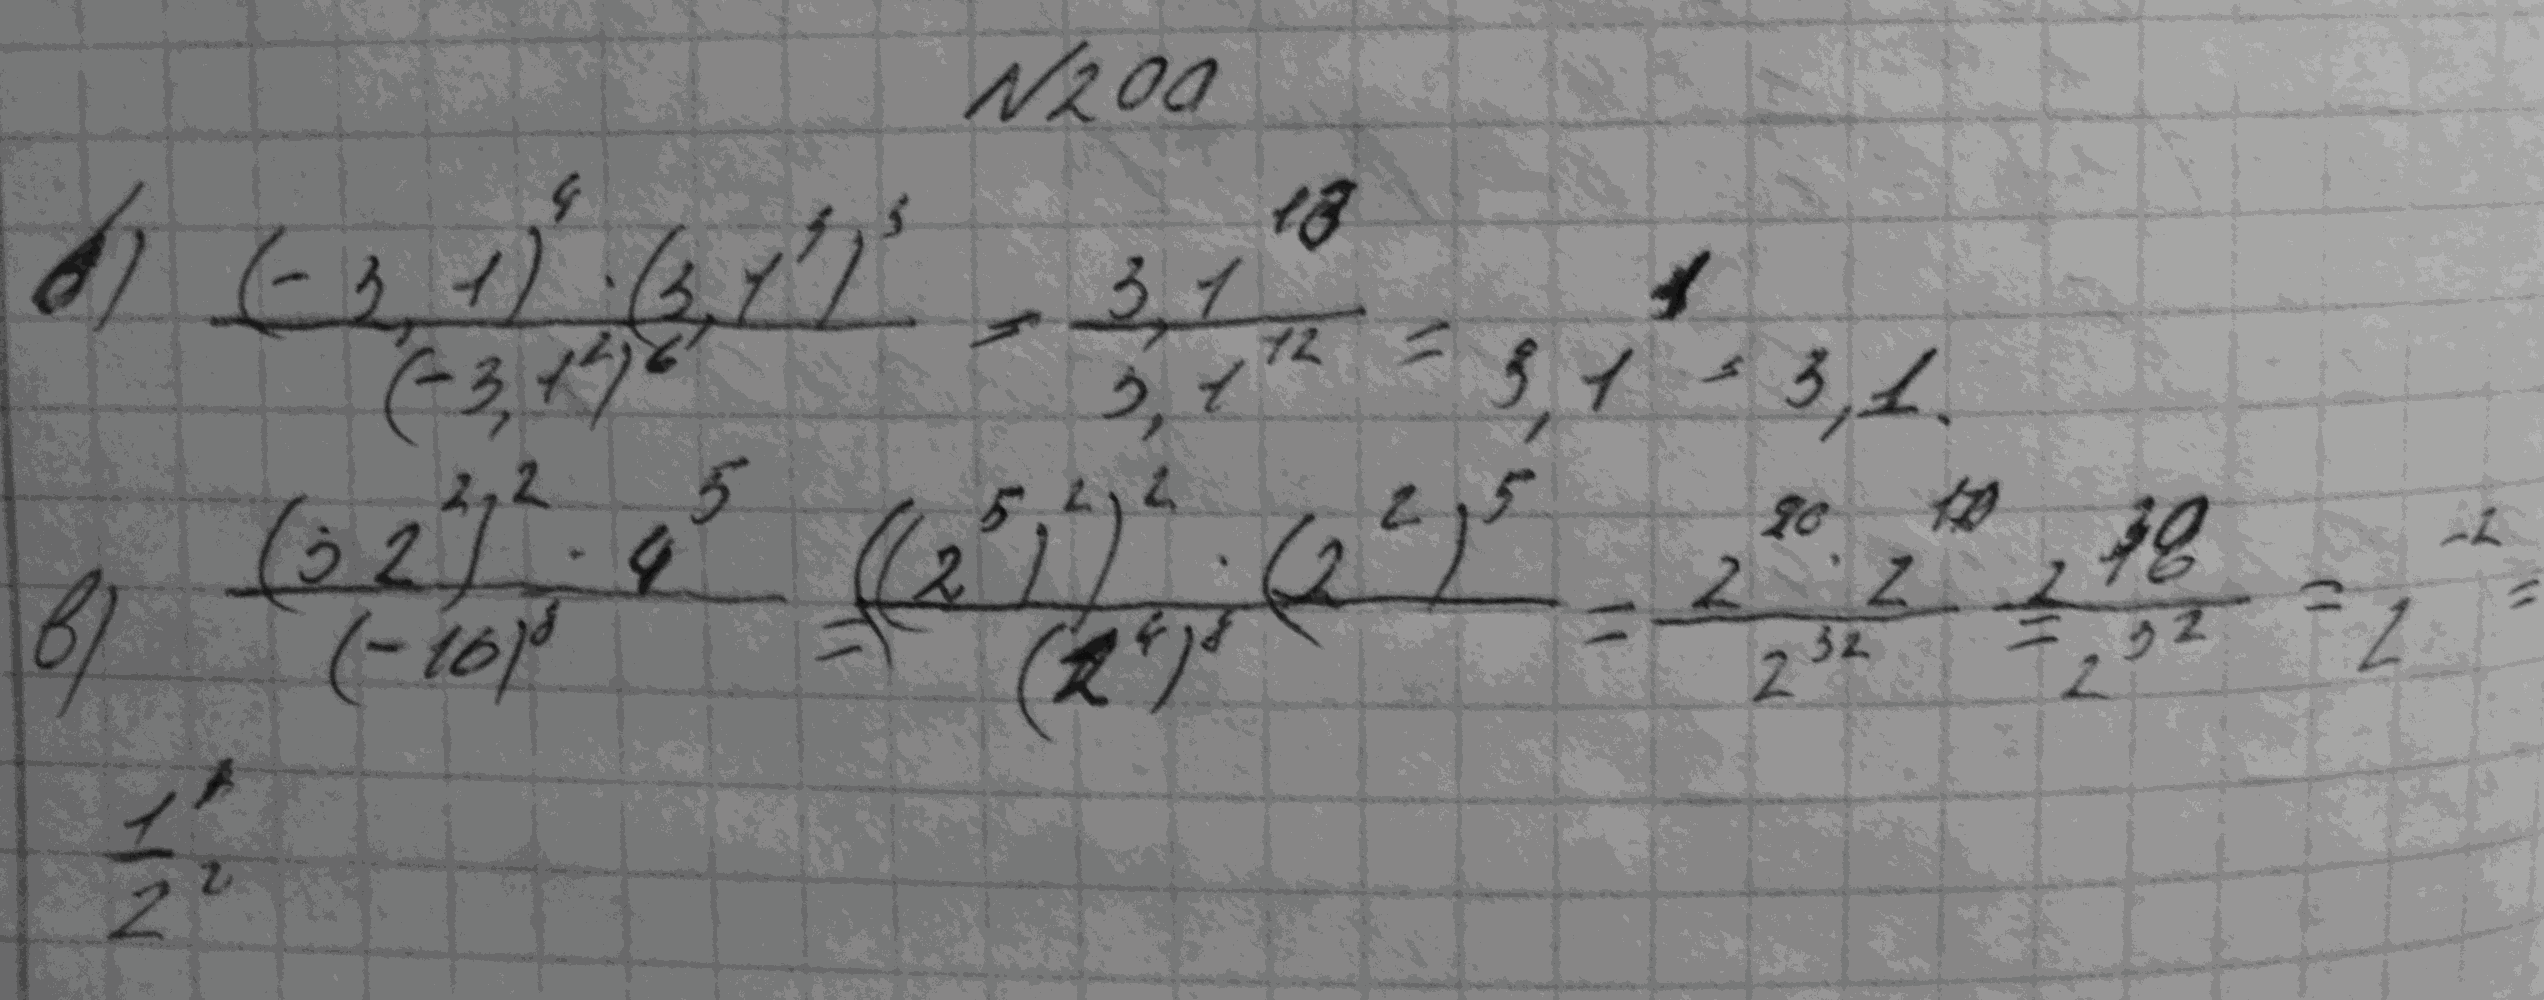 №200
б) ((-3,1)^4 · (3,1^3)^3) / (-3,1^2)^6 = 3,1^13 / 3,1^12 = 3,1^1 = 3,1.
в) ((32^2)^2 · 4^5) / (-16)^8 = (((2^5)^2)^2 · (2^2)^5) / (2^4)^8 = (2^20 · 2^10) / 2^32 = 2^30 / 2^32 = 2^-2 =
1 / 2^2